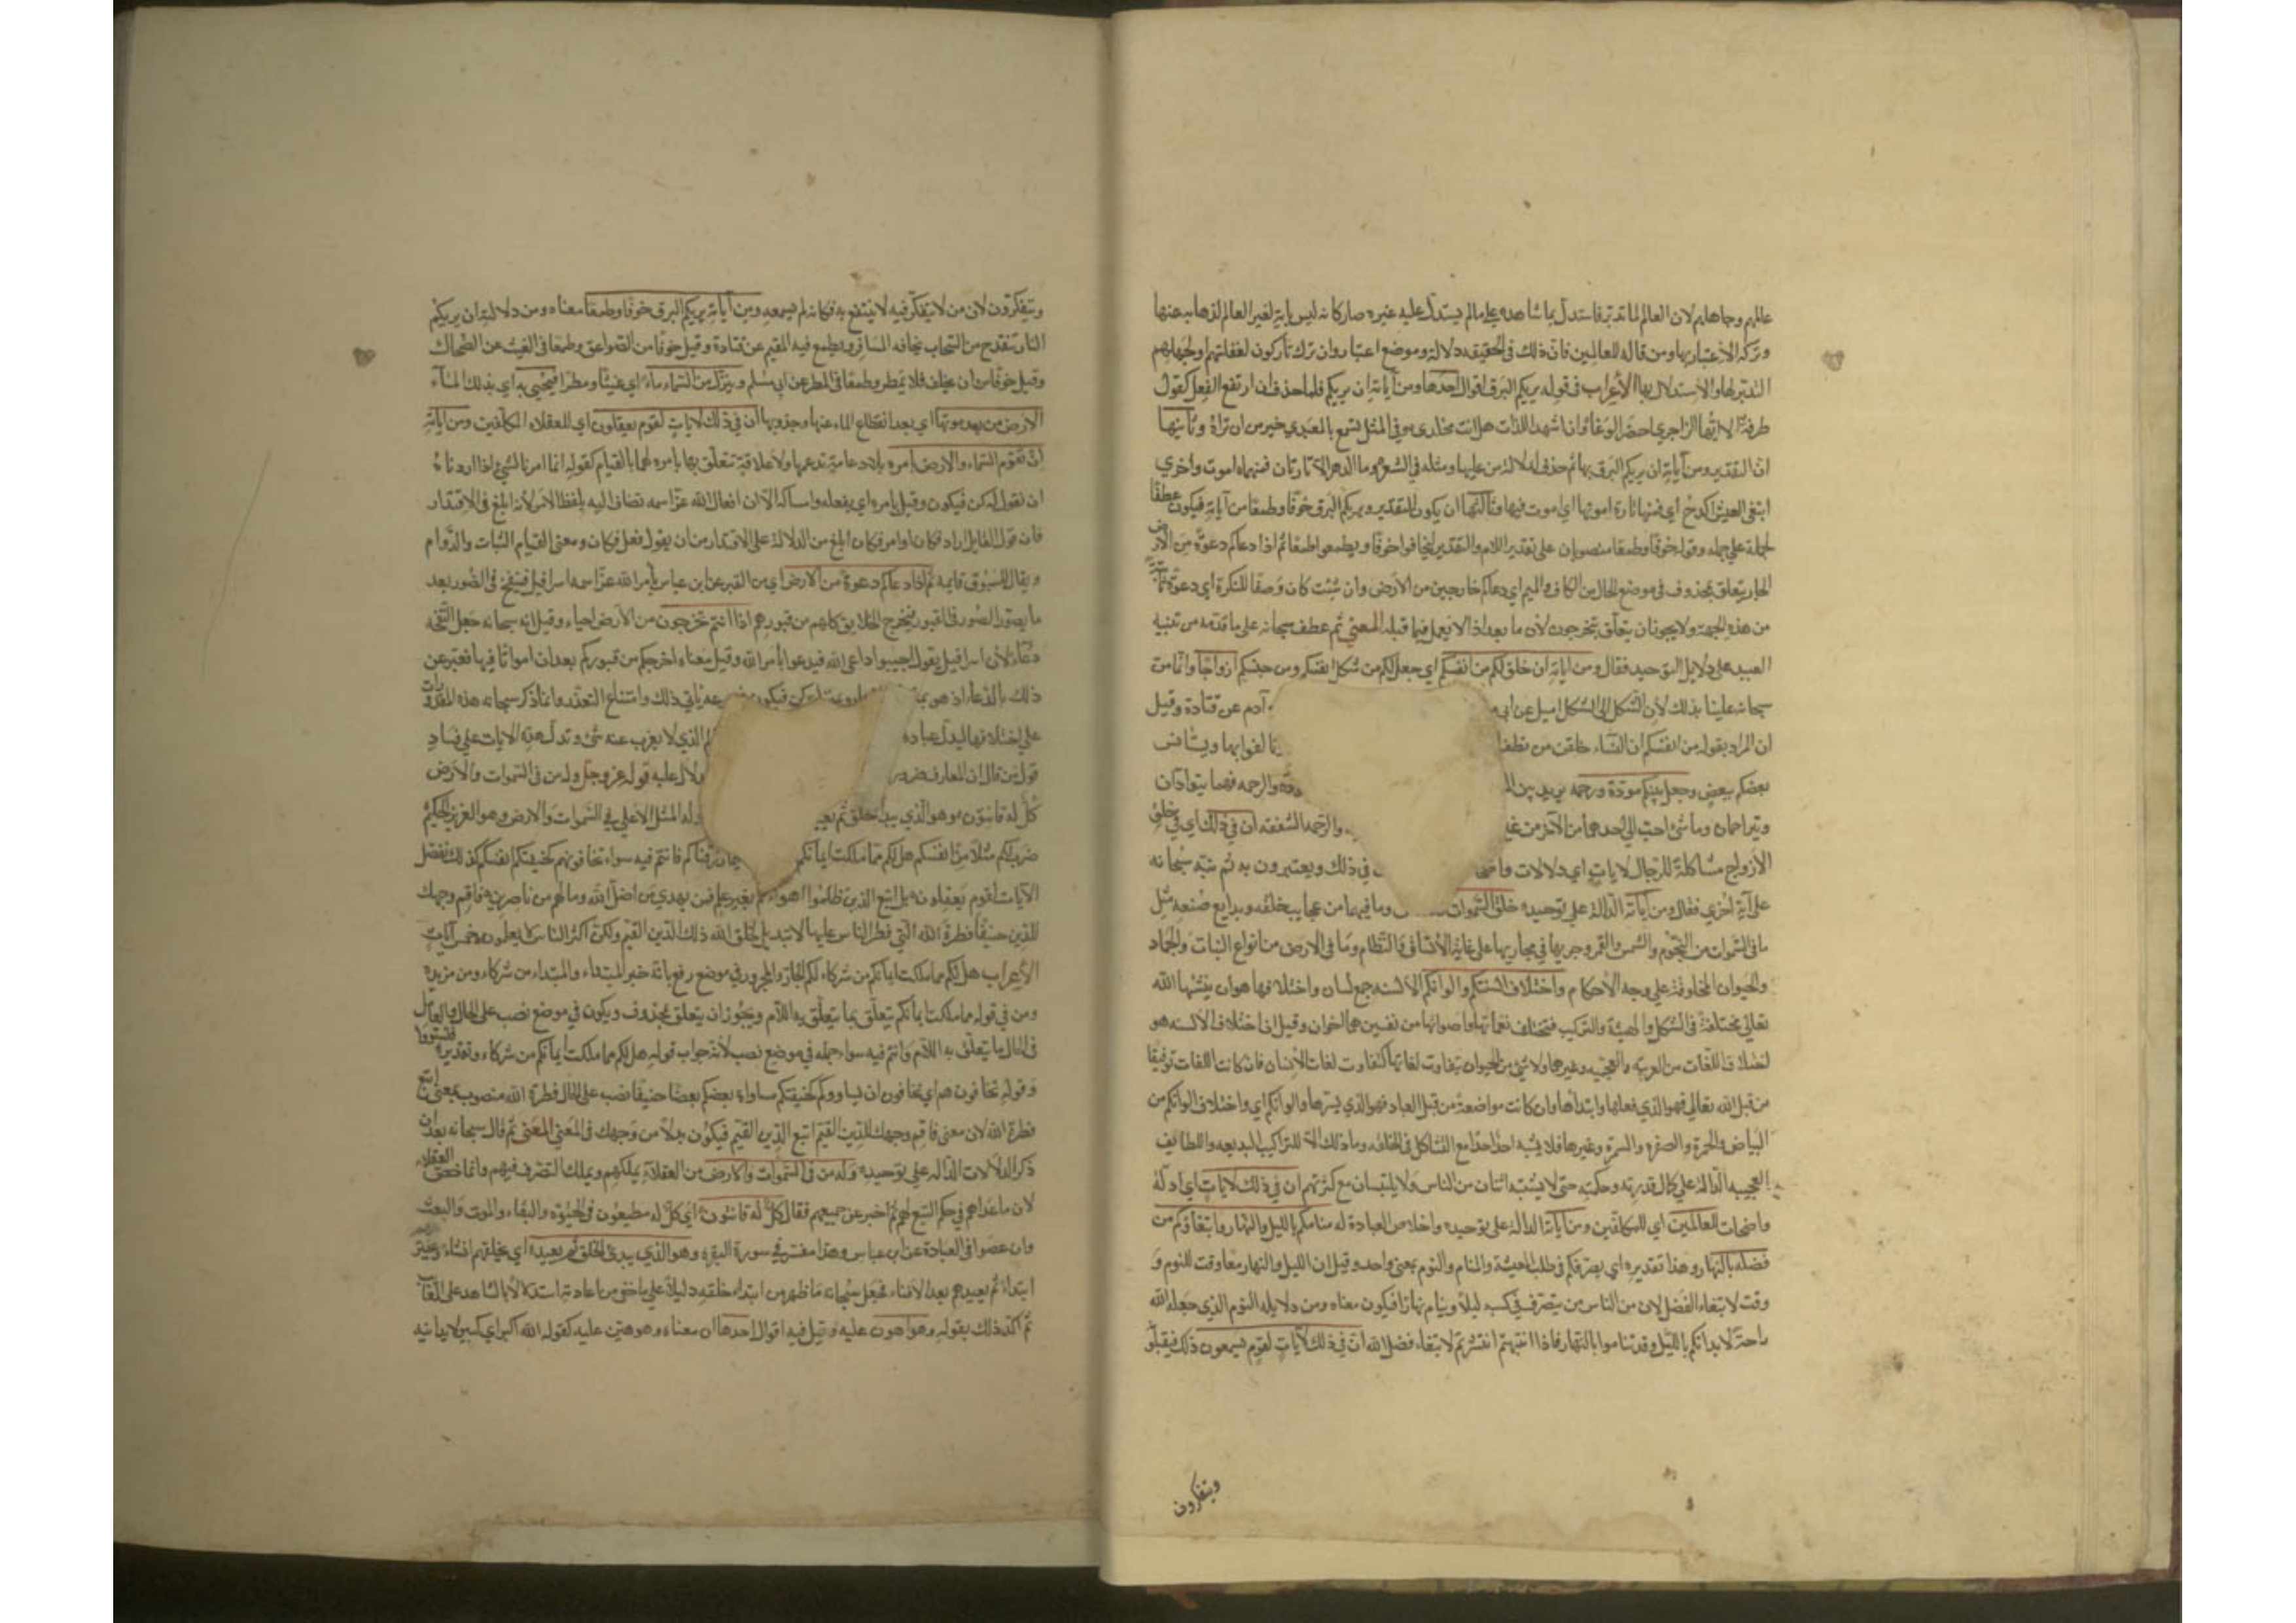 عالمهم وجاهلهم لان العالم لما تدبر فاستدل بما شاهده على ما لم يستدل عليه غيره صار كانه ليس باية لغير العالم لذهابه عنها
وتركه الاعتبار بها ومن قال للعالمين فان ذلك في الحقيقه دلالة وموضع اعتبار وان ترك تاركون لغفلتهم او لجهلهم
التدبر لها والاستدلال بها الأعراب في قوله يريكم البرق اقوال احدها ومن آياته ان يريكم فلما حذف ان ارتفع الفعل كقول
طرفة الا ايهذا الزاجري احضر الوغا وان اشهد اللذات هل انت مخلدي وفي المثل تسمع بالمعيدي خير من ان تراه وثانيها
ان التقدير ومن آياته اية يريكم البرق بها ثم حذف لدلالة من عليها ومثله في الشعر وما الدهر الا تارتان فمنهما اموت واخري
ابتغي العيش اكدح أي فمنها تارة اموتها اي اموت فيها وثالثها ان يكون التقدير ويريكم البرق خوفا وطمعا من آياته فيكون عطفا
لجملة على جملة وقوله خوفا وطمعا منصوبان على تقدير اللام والتقدير لتخافوا خوفا ويطمعوا طمعا ثم اذا دعاكم دعوة من الارض
الجار يتعلق بمحذوف في موضع الحال من الكاف والميم اي دعاكم خارجين من الارض وان شئت كان وصفا للنكرة اي دعوة ثابتة
من هذه الجهة ولا يجوز ان يتعلق بتخرجون لان ما بعد اذا لا يعمل فيما قبله المعني ثم عطف سبحانه على ما قدمه من تنبيه
العبيد على دلايل التوحيد فقال ومن اياته ان خلق لكم من انفسكم اي جعل لكم من شكل انفسكم ومن جنسكم ازواجا وانما من
سبحانه علينا بذلك لان الشكل الى الشكل اميل عن ابي آدم عن قتادة وقيل
ان المراد بقوله من انفسكم ان النساء خلقن من نطف تالفوا بها ويستانس
بعضكم ببعض وجعل بينكم مودة ورحمه يريد بين ال والرحمه فهما يتوادان
ويتراحمان وما شئ احب الى احدهما من الاخر من غير والرحمه الشفقه ان في ذلك اي في خلق
الازواج مشاكلة للرجال لايات اي دلالات واضحا في ذلك ويعتبرون به ثم نبه سبحانه
على آية اخري فقال ومن آياته الدالة على توحيده خلق السموات وما فيها من عجايب خلقه وبدايع صنعه مثل
ما في السموات من النجوم والشمس والقمر وجريها في مجاريها على غاية الاتساق والنظام وما في الارض من انواع النبات والجماد
والحيوان المخلوقة على وجه الاحكام واختلاف السنتكم والوانكم الالسنه جمع لسان واختلافها هو ان ينشئها الله
تعالى مختلفة في الشكل والهيئة والتركيب فتختلف نغماتها واصواتها من نفسين هما اخوان وقيل ان اختلاف الالسنه هو
اختلاف اللغات من العربية والعجميه وغيرهما ولا شئ من الحيوان يتفاوت لغاتها كتفاوت لغات الانسان فان كانت اللغات توقيفا
من قبل الله تعالى فهو الذي فعلها وابتداها وان كانت مواضعة من قبل العباد فهو الذي يسرها والوانكم اي واختلاف الوانكم من
البياض والحمرة والصفرة والسمرة وغيرها فلا يشبه احد احدا مع التشاكل في الخلقه وما ذلك الا للتراكيب البديعه واللطايف
العجيبه الدالة على كمال قدرته وحكمته حتى لا يشتبه اثنان من الناس ولا يلتبسان مع كثرتهم ان في ذلك لايات اي ادلة
واضحات للعالمين اي للمكلفين ومن آياته الدالة على توحيده واخلاص العبادة له منامكم بالليل والنهار وابتغاؤكم من
فضله بالنهار وهذا تقديره اي يصرفكم في طلب المعيشة والمنام والنوم بمعنى واحد وقيل ان الليل والنهار معا وقت للنوم و
وقت لابتغاء الفضل لان من الناس من يتصرف في كسبه ليلا وينام نهارا فيكون معناه ومن دلايله النوم الذي جعله الله
راحة لابدانكم بالليل وقد تناموا بالنهار فاذا انتبهتم انتشرتم لابتغاء فضل الله ان في ذلك لآيات لقوم يسمعون ذلك فيقبلو
ويتفكرون
ويتفكرون لان من لا يتفكر فيه لا ينتفع به فكانه لم يسمعه ومن آياته يريكم البرق خوفا وطمعا معناه ومن دلالته ان يريكم
النار تنقدح من السحاب يخافه المسافر ويطمع فيه المقيم عن قتادة وقيل خوفا من الصواعق وطمعا في الغيث عن الضحاك
وقيل خوفا من ان يخلف فلا يمطر وطمعا في المطر عن ابي مسلم وينزل من السماء ماء اي غيثا ومطرا فيحيي به اي بذلك الماء
الارض من بعد موتها اي بعد انقطاع الماء عنها وجدوبها ان في ذلك لايات لقوم يعقلون اي للعقلاء المكلفين ومن اياته
ان تقوم السماء والارض بامره بلا دعامة تدعمها ولا علاقة تتعلق بها بامره لهما بالقيام كقوله انما امرنا لشئ اذا اردناه
ان نقول له كن فيكون وقيل بامره اي بفعله وامساكه الا ان افعال الله عز اسمه تضاف اليه بلفظ الامر لانه ابلغ في الاقتدار
فان قول القايل اراد فكان او امر فكان ابلغ من الدلالة على الاقتدار من ان يقول فعل فكان ومعنى القيام الثبات والدوام
ويقال للسوق قايمه ثم اذا دعاكم دعوة من الارض اي من القبر عن ابن عباس يأمر الله عز اسمه اسرافيل فينفخ في الصور بعد
ما يصور الصور في القبور فيخرج الخلايق كلهم من قبورهم اذا انتم تخرجون من الارض احياء وقيل انه سبحانه جعل النفخه
دعاء لان اسرافيل يقول اجيبوا داعي الله فيدعوا بامر الله وقيل معناه اخرجكم من قبوركم بعد ان امواتا فيها فعبر عن
ذلك بالدعاء اذ هو بمنزلة كن فيكون ياتي ذلك وامتناع التعذر وانما ذكر سبحانه هذه المقدورات
على اختلافها ليدل عباده الذي لا يعزب عنه شئ وتدل هذه الايات على فساد
قول من قال ان المعارف ضرور ولال عليه قوله عز وجل وله من في السموات والارض
كل له قانتون وهو الذي يبدأ الخلق ثم يعيد وله المثل الاعلى في السموات والارض وهو العزيز الحكيم
ضرب لكم مثلا من انفسكم هل لكم مما ملكت ايمانكم رزقناكم فانتم فيه سواء تخافونهم كخيفتكم انفسكم كذلك نفصل
الآيات لقوم يعقلون بل اتبع الذين ظلموا اهواءهم بغير علم فمن يهدي من اضل الله وما لهم من ناصرين فاقم وجهك
للدين حنيفا فطرة الله التي فطر الناس عليها لا تبديل لخلق الله ذلك الدين القيم ولكن اكثر الناس لا يعلمون خمس آيات
الأعراب هل لكم مما ملكت ايمانكم من شركاء لكم الجار والمجرور في موضع رفع بانه خبر المبتداء والمبتداء من شركاء ومن مزيدة
ومن في قوله مما ملكت ايمانكم يتعلق بما يتعلق به اللام ويجوز ان يتعلق بمحذوف ويكون في موضع نصب على الحال والعامل
في الحال ما يتعلق به اللام وانتم فيه سواء جملة في موضع نصب لانه جواب قوله هل لكم مما ملكت ايمانكم من شركاء وتقديره فتستووا
وقوله تخافونهم اي تخافون ان يساووكم كخيفتكم مساواة بعضكم بعضا حنيفا نصب على الحال فطرة الله منصوب بمعنى اتبع
فطرة الله لان معنى فاقم وجهك للدين القيم اتبع الدين القيم فيكون بدلا من وجهك في المعني المعنى ثم قال سبحانه بعد ان
ذكر الدلالات الدالة على توحيده وله من في السموات والارض من العقلاء يملكهم ويملك التصرف فيهم وانما خص العقلاء
لان ما عداهم في حكم التبع لهم ثم اخبر عن جميعهم فقال كل له قانتون اي كل له مطيعون في الحيوة والبقاء والموت والبعث
وان عصوا في العبادة عن ابن عباس وهذا مفسر في سورة البقرة وهو الذي يبدؤ الخلق ثم يعيده اي يخلقهم انشاء
ابتداء ثم يعيدهم بعد الافناء فجعل سبحانه ما ظهر من ابتداء خلقه دليلا على ما خفي من اعادته استدلالا بالشاهد على الغايب
ثم اكد ذلك بقوله وهو اهون عليه وقيل فيه اقوال احدها ان معناه وهو هين عليه كقوله الله اكبر اي كبير لا يدانيه